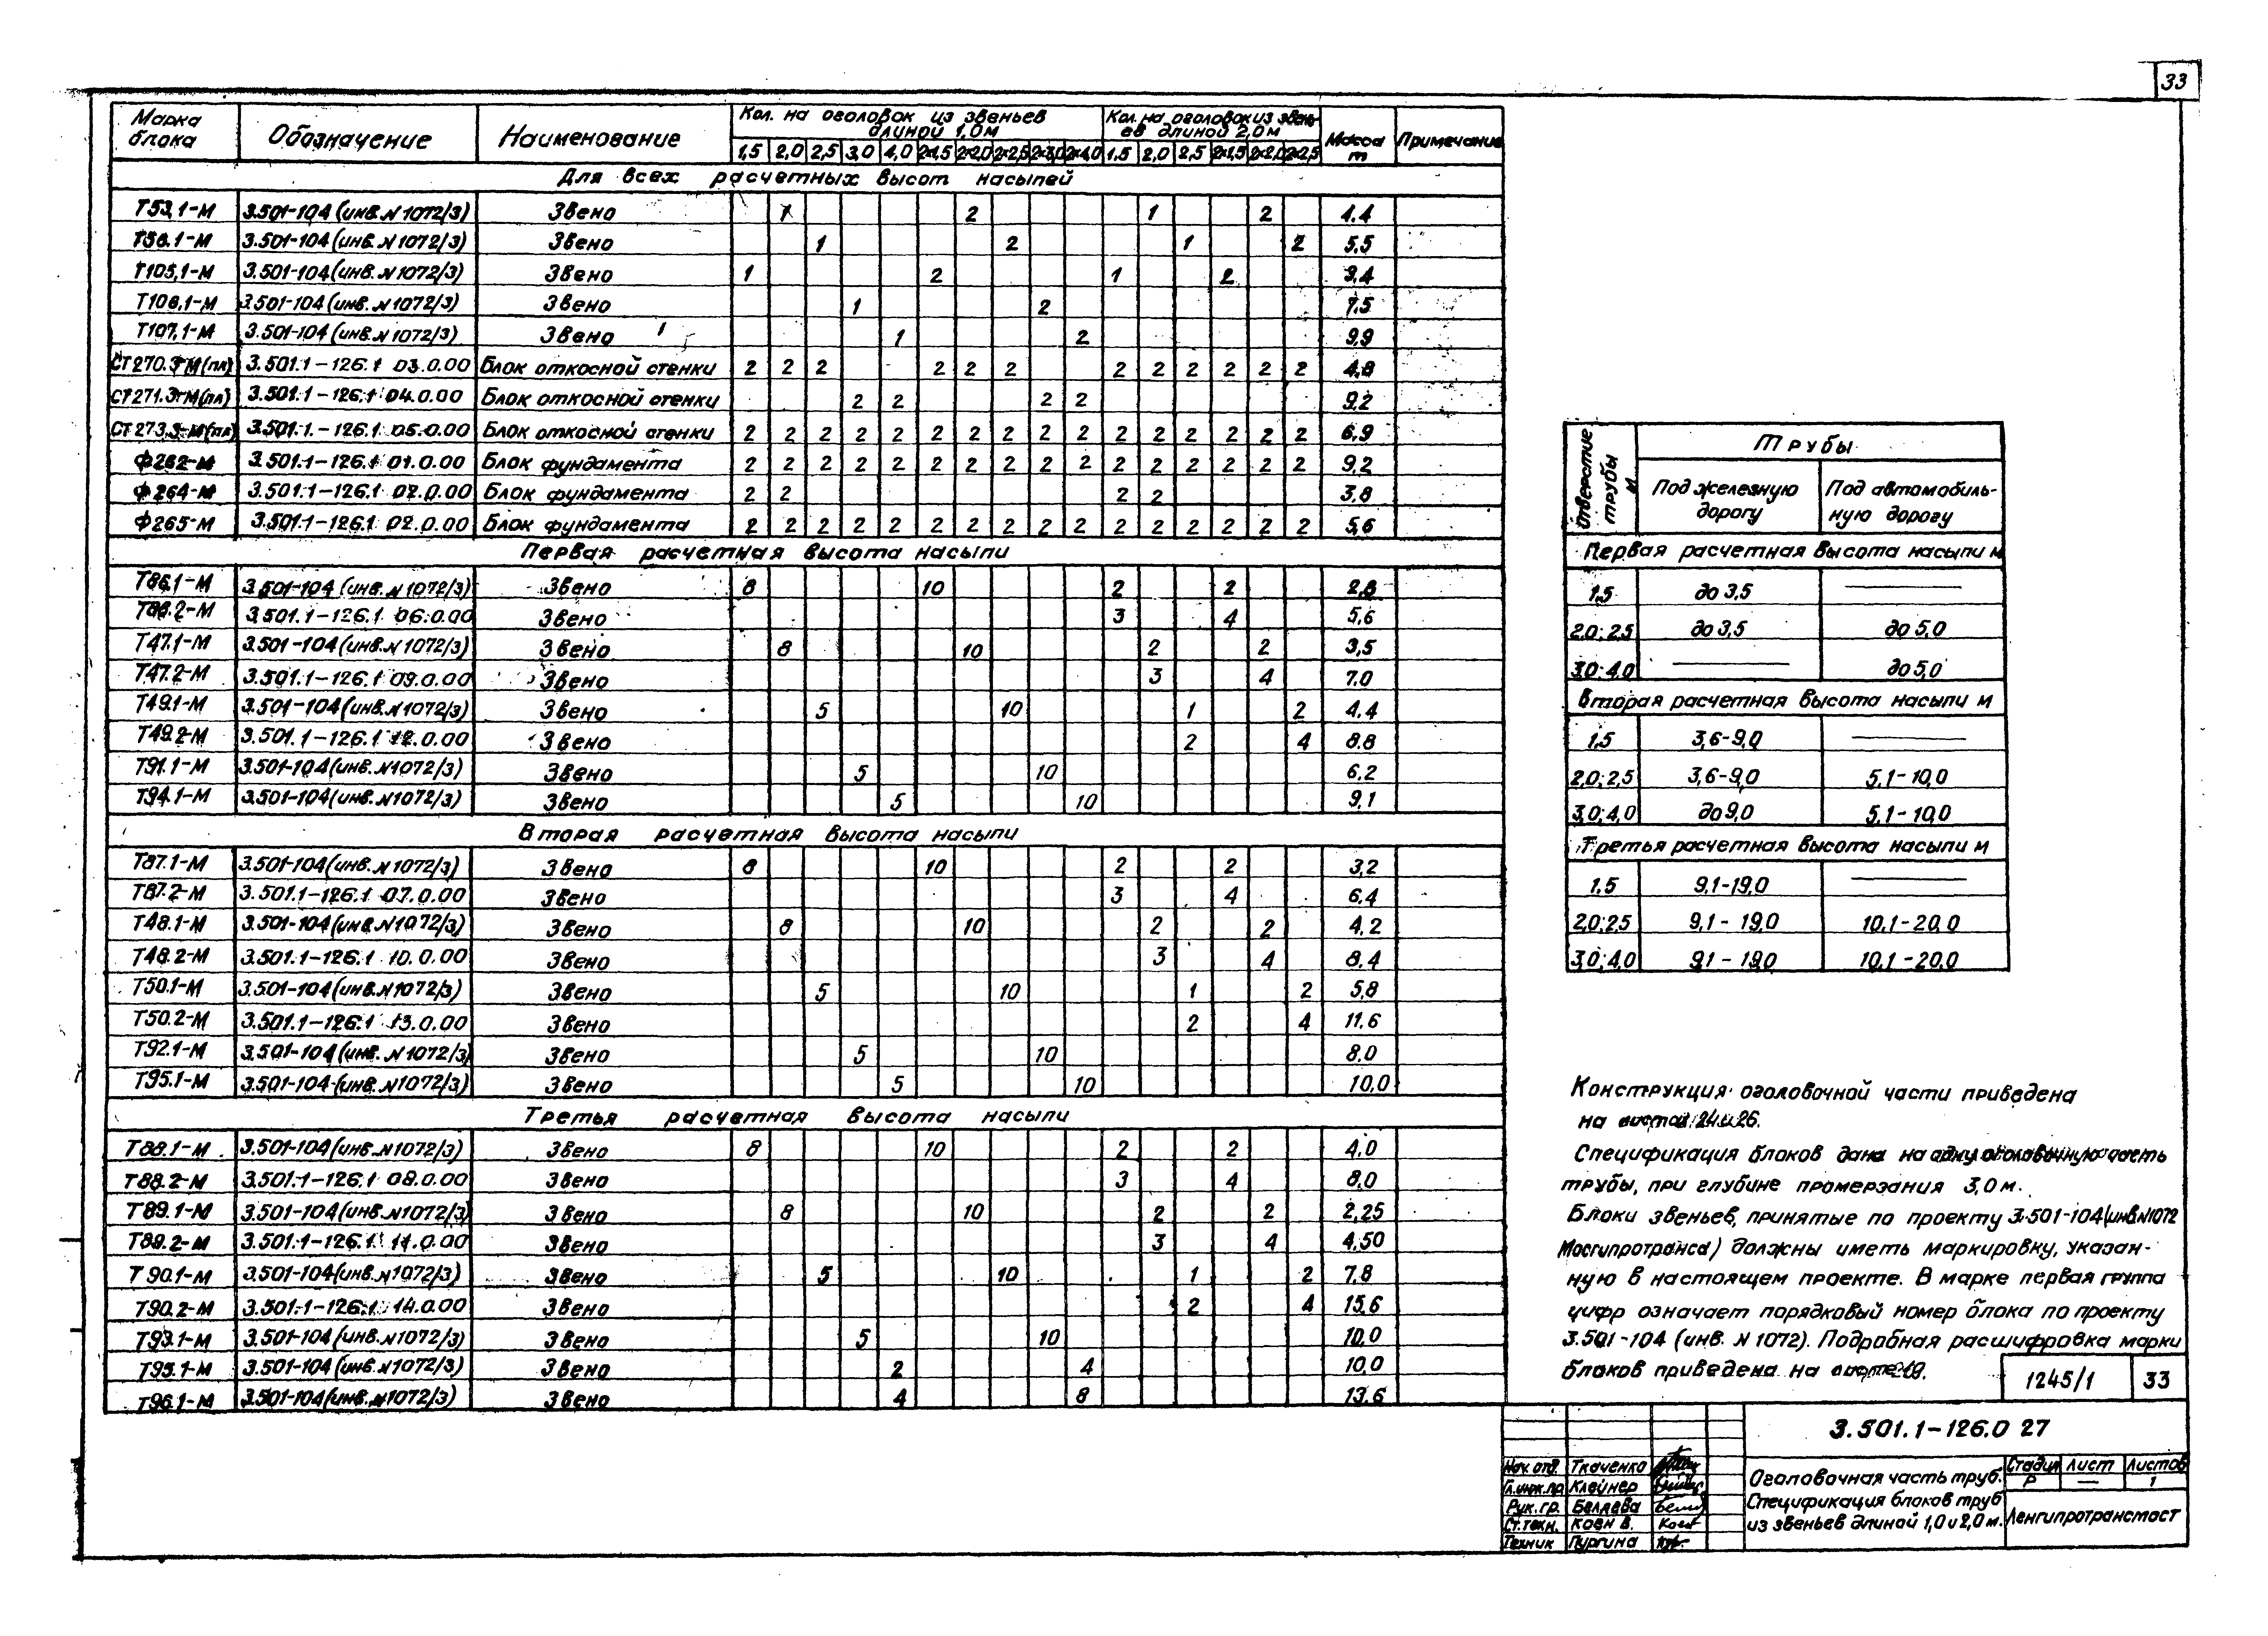 33
Марка блока | Обозначение | Наименование | Кол. на оголовок из звеньев длиной 1,0м | Кол. на оголовок из звеньев длиной 2,0м | Масса т | Примечание
1,5 2,0 2,5 3,0 4,0 2×1,5 2×2,0 2×2,5 2×3,0 2×4,0 1,5 2,0 2,5 2×1,5 2×2,0 2×2,5
Для всех расчетных высот насыпей
Т53,1-М 3.501-104 (инв. N 1072/3) Звено 1 2 1 2 4.4
3.501-104 (инв. N 1072/3) Звено 1 2 1 2 5,5
Т105,1-М 3.501-104 (инв. N 1072/3) Звено 1 2 1 2 9,4
Т106,1-М 3.501-104 (инв. N 1072/3) Звено 1 2 7,5
Т107,1-М 3.501-104 (инв. N 1072/3) Звено 1 2 9,9
СТ270.3-М(пл) 3.501.1-126.1 03.0.00 Блок откосной стенки 2 2 2 2 2 2 2 2 2 2 2 2 4,8
СТ271.3-М(пл) 3.501.1-126.1 04.0.00 Блок откосной стенки 2 2 2 2 9,2
СТ273.3-М(пл) 3.501.1-126.1 05.0.00 Блок откосной стенки 2 2 2 2 2 2 2 2 2 2 2 2 2 2 2 2 6,9
Ф262-М 3.501.1-126.1 01.0.00 Блок фундамента 2 2 2 2 2 2 2 2 2 2 2 2 2 2 2 2 9,2
Ф264-М 3.501.1-126.1 02.0.00 Блок фундамента 2 2 2 2 3,8
Ф265-М 3.501.1-126.1 02.0.00 Блок фундамента 2 2 2 2 2 2 2 2 2 2 2 2 2 2 2 2 5,6
Первая расчетная высота насыпи
Т86.1-М 3.501-104 (инв. N 1072/3) Звено 8 10 2 2 2,8
Т86.2-М 3.501.1-126.1 06.0.00 Звено 3 4 5,6
Т47.1-М 3.501-104 (инв. N 1072/3) Звено 8 10 2 2 3,5
Т47.2-М 3.501.1-126.1 09.0.00 Звено 3 4 7.0
Т49.1-М 3.501-104 (инв. N 1072/3) Звено 5 10 1 2 4.4
Т49.2-М 3.501.1-126.1 12.0.00 Звено 2 4 8.8
Т91.1-М 3.501-104 (инв. N 1072/3) Звено 5 10 6,2
Т94.1-М 3.501-104 (инв. N 1072/3) Звено 5 10 9,1
Вторая расчетная высота насыпи
Т87.1-М 3.501-104 (инв. N 1072/3) Звено 8 10 2 2 3,2
Т87.2-М 3.501.1-126.1 07.0.00 Звено 3 4 6.4
Т48.1-М 3.501-104 (инв. N 1072/3) Звено 8 10 2 2 4,2
Т48.2-М 3.501.1-126.1 10.0.00 Звено 3 4 8.4
Т50.1-М 3.501-104 (инв. N 1072/3) Звено 5 10 1 2 5,8
Т50.2-М 3.501.1-126.1 13.0.00 Звено 2 4 11.6
Т92.1-М 3.501-104 (инв. N 1072/3) Звено 5 10 8.0
Т95.1-М 3.501-104 (инв. N 1072/3) Звено 5 10 10,0
Третья расчетная высота насыпи
Т88.1-М 3.501-104 (инв. N 1072/3) Звено 8 10 2 2 4,0
Т88.2-М 3.501.1-126.1 08.0.00 Звено 3 4 8,0
Т89.1-М 3.501-104 (инв. N 1072/3) Звено 8 10 2 2 2,25
Т89.2-М 3.501.1-126.1 11.0.00 Звено 3 4 4,50
Т90.1-М 3.501-104 (инв. N 1072/3) Звено 5 10 1 2 7.8
Т90.2-М 3.501.1-126.1 14.0.00 Звено 2 4 15,6
Т93.1-М 3.501-104 (инв. N 1072/3) Звено 5 10 10,0
Т95.1-М 3.501-104 (инв. N 1072/3) Звено 2 4 10,0
Т96.1-М 3.501-104 (инв. N 1072/3) Звено 4 8 13,6
Отверстие трубы м | Трубы
Под железную дорогу | Под автомобильную дорогу
Первая расчетная высота насыпи м
1,5 до 3,5 —
2,0; 2,5 до 3,5 до 5,0
3,0; 4,0 — до 5,0
Вторая расчетная высота насыпи м
1,5 3,6-9,0 —
2,0; 2,5 3,6-9,0 5,1-10,0
3,0; 4,0 до 9,0 5,1-10,0
Третья расчетная высота насыпи м
1,5 9,1-19,0 —
2,0; 2,5 9,1-19,0 10,1-20,0
3,0; 4,0 9,1-19,0 10,1-20,0
Конструкция оголовочной части приведена
на листах 24 и 26.
Спецификация блоков дана на одну оголовочную часть
трубы, при глубине промерзания 3,0 м.
Блоки звеньев, принятые по проекту 3.501-104 (инв. N 1072
Мосгипротранса) должны иметь маркировку, указан-
ную в настоящем проекте. В марке первая группа
цифр означает порядковый номер блока по проекту
3.501-104 (инв. N 1072). Подробная расшифровка марки
блоков приведена на листе
1245/1 33
3.501.1-126.0 27
Нач. отд. Ткаченко
Гл.инж.пр. Клейнер
Рук. гр. Беляева
Ст. техн. Коен В.
Техник Пургина
Оголовочная часть труб.
Спецификация блоков труб
из звеньев длиной 1,0 и 2,0 м.
Стадия Лист Листов
Р — 1
Ленгипротрансмост